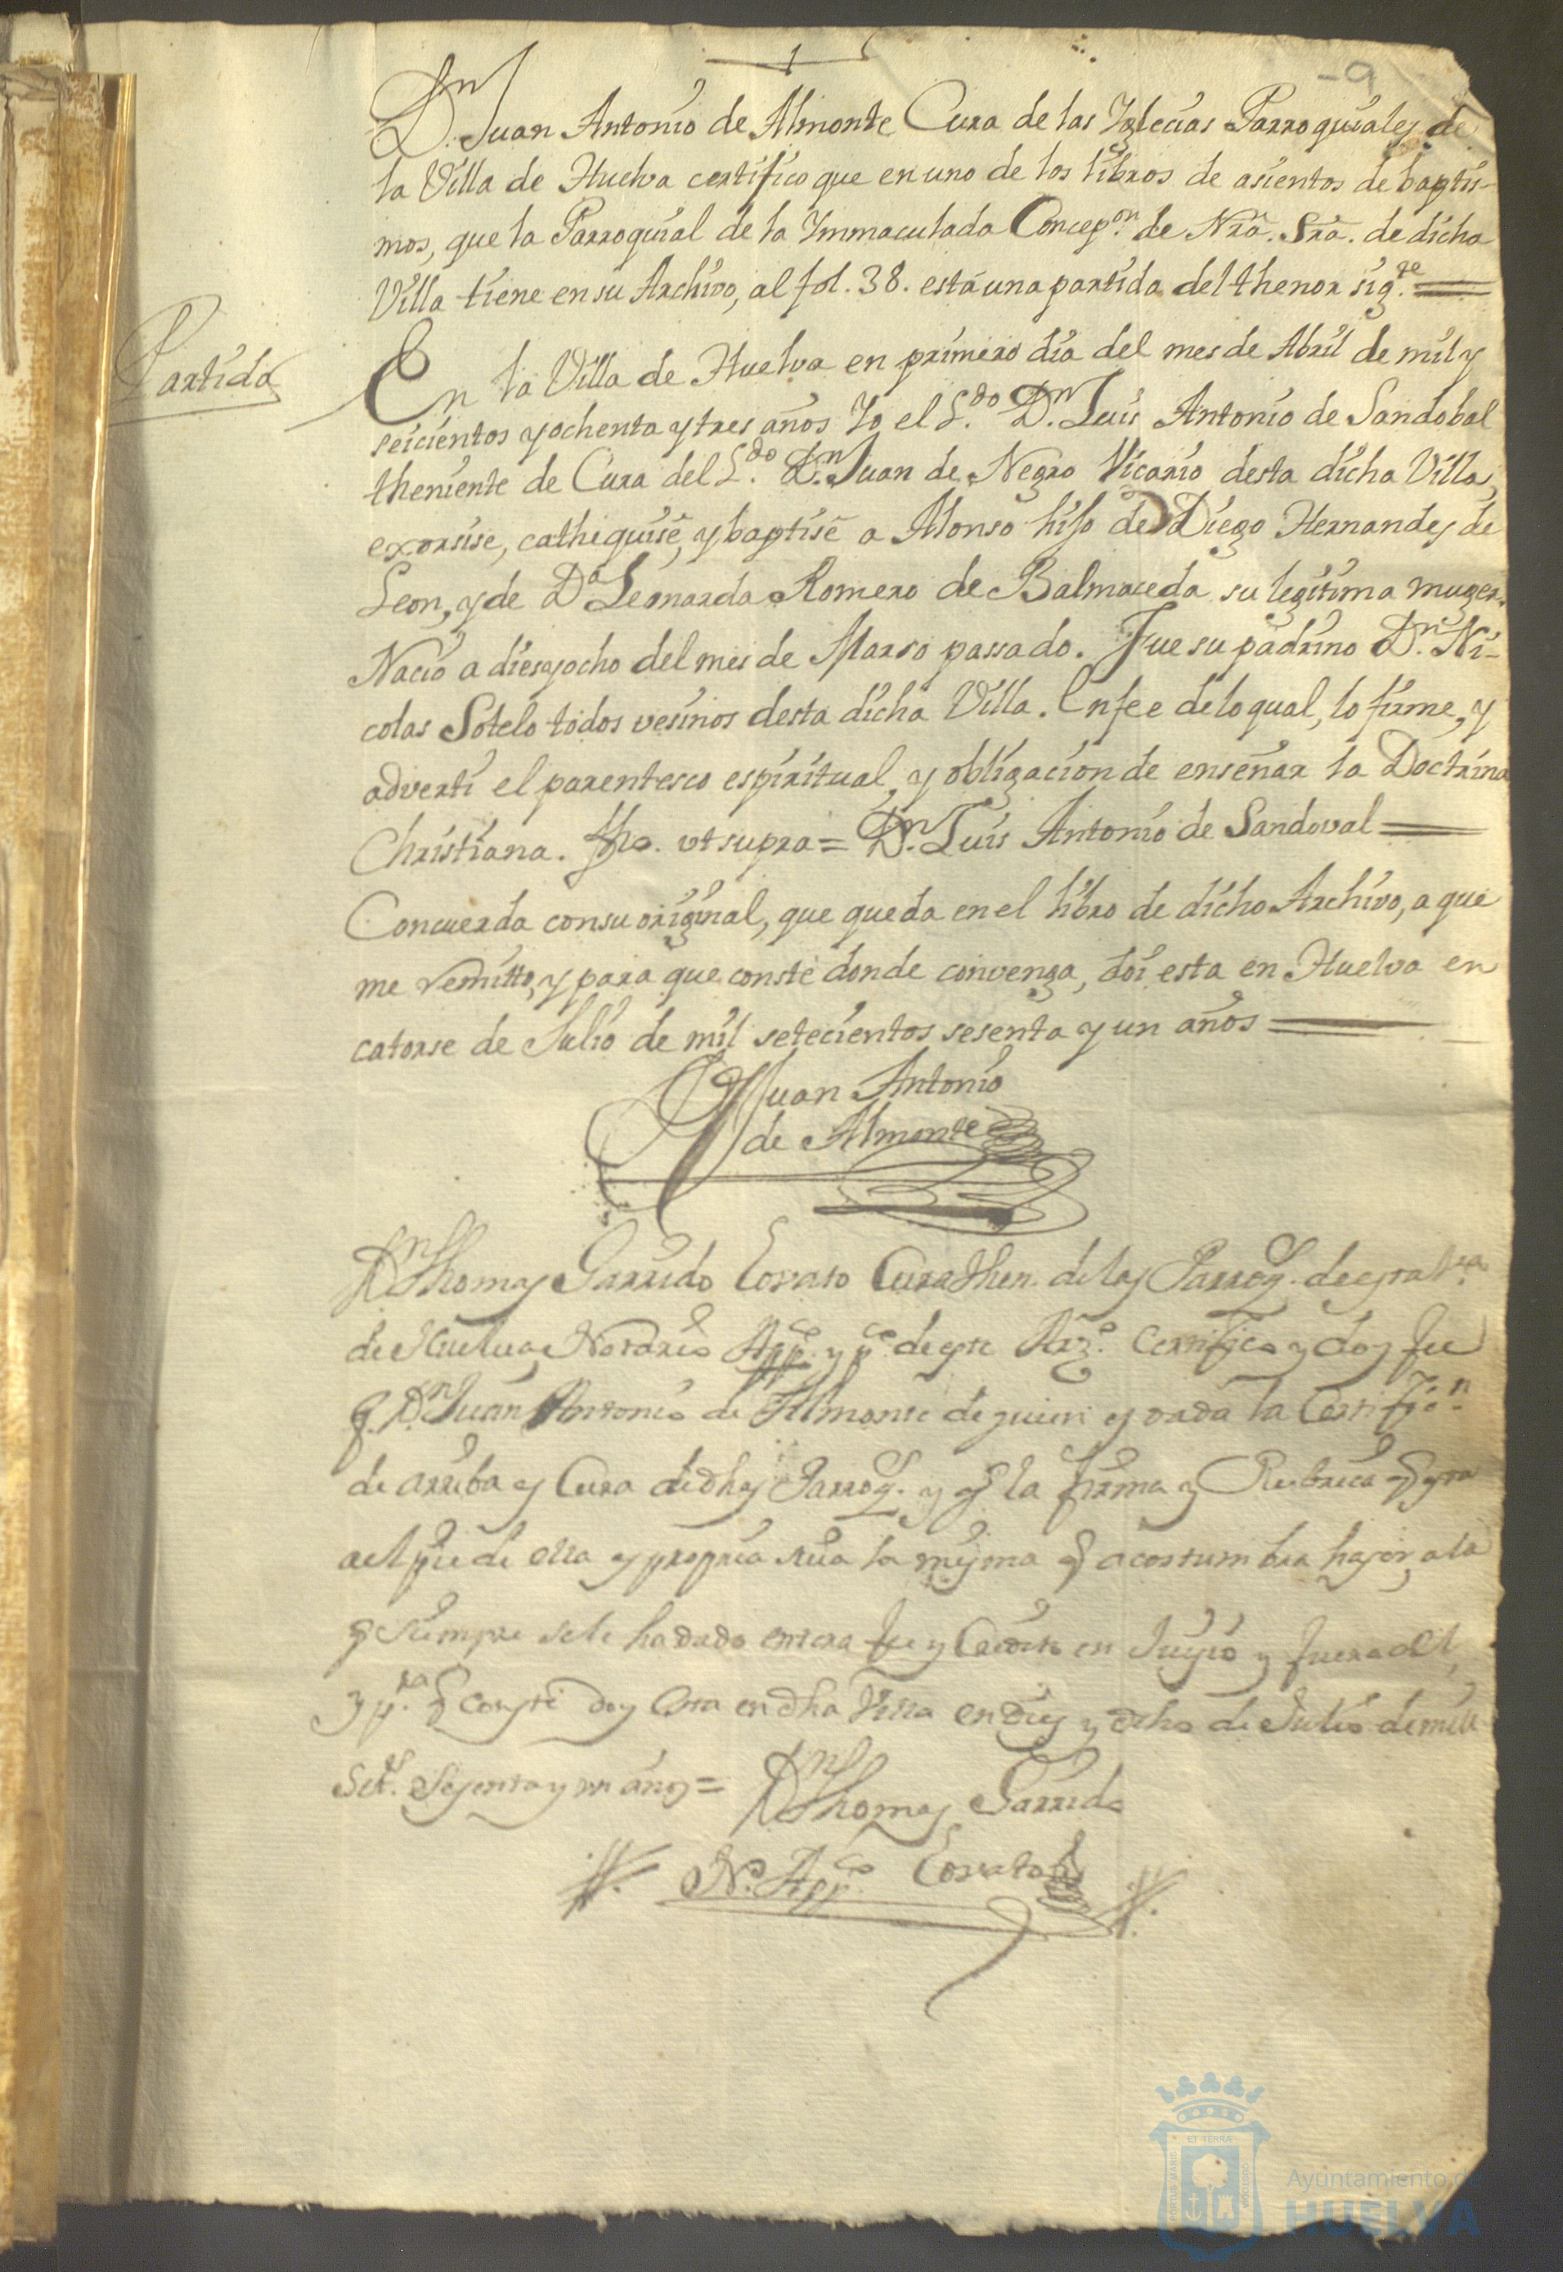 -9
Dn. Juan Antonio de Almonte Cura de las Yglecias Parroquiales de
la Villa de Huelva certifico que en uno de los libros de asientos de baptis-
mos, que la Parroquial de la Ymmaculada Concepon. de Nra. Sra. de dicha
Villa tiene en su Archivo, al fol. 38. está una partida del thenor sigte.
Partida
En la Villa de Huelva en primero dia del mes de Abril de mil y
seicientos y ochenta y tres años Yo el Ldo. Dn. Luis Antonio de Sandobal
theniente de Cura del Ldo. Dn. Juan de Negro Vicario desta dicha Villa,
exorsise, cathequisé, y baptisé a Alonso hijo de Diego Hernandes de
Leon, y de Da. Leonarda Romero de Balmaceda su legitima muger.
Nacio a dies y ocho del mes de Marso passado. Fue su padrino Dn. Ni-
colas Sotelo todos vesinos desta dicha Villa. En fee de lo qual, lo firme, y
adverti el parentesco espiritual, y obligacion de enseñar la Doctrina
Christiana. fho. ut supra = Dn. Luis Antonio de Sandoval
Concuerda con su original, que queda en el libro de dicho Archivo, a que
me remitto, y para que conste donde convenga, doi esta en Huelva en
catorse de Julio de mil setecientos sesenta y un años
Juan Antonio
de Almonte
Dn. Thomas Garrido Corvato Cura then. de las Parroqs. de esta Va.
de Huelva, Notario Appco. y pco. de este Arzo. Certifico y doy fee
q. Dn. Juan Antonio de Almonte de quien es dada la Certificn.
de arriba es Cura de dhas Parroqs. y q la firma y Rubrica q esta
al pie de ella es propria suia la misma q acostumbra haser, a la
q siempre se le ha dado entera fee y Credito en Juisio y fuera del,
y pra. q conste doy esta en dha Villa en dies y ocho de Julio de mill
Sets. Sesenta y un años = Dn. Thomas Garrido
No. Appco. Corvato
ET TERRÆ
PORTUS MARIS
CUSTODIA
Ayuntamiento de
HUELVA